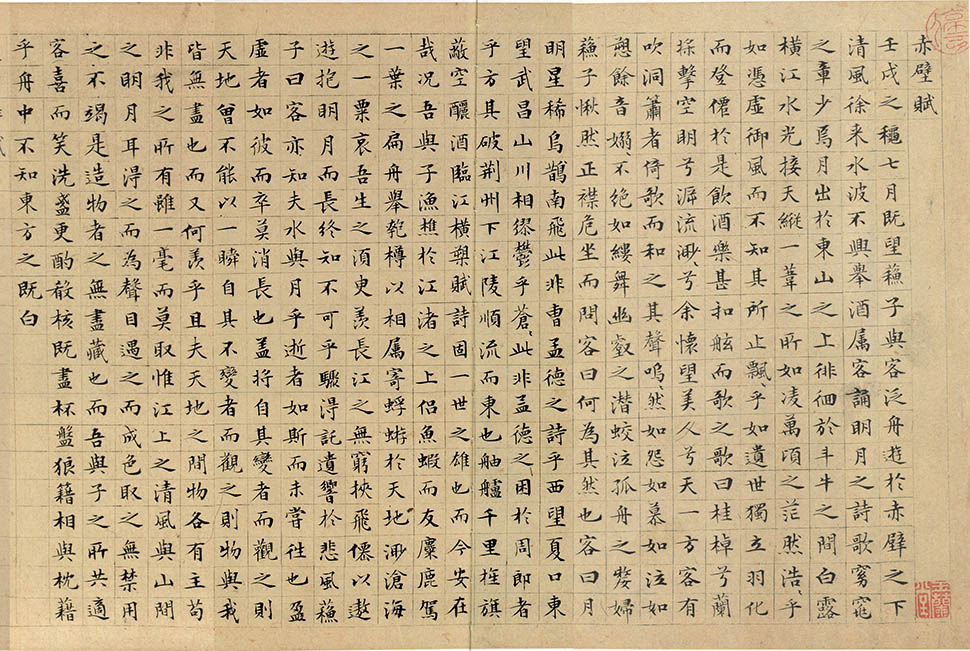 赤壁賦
壬戌之穐七月既望蘓子與客泛舟遊於赤壁之下
清風徐来水波不興舉酒属客誦明月之詩歌窈窕
之章少焉月出於東山之上徘徊於斗牛之間白露
横江水光接天縱一葦之所如凌萬頃之茫然浩〻乎
如憑虚御風而不知其所止飄〻乎如遺世獨立羽化
而登僊於是飲酒樂甚扣舷而歌之歌曰桂棹兮蘭
槳擊空明兮泝流渺兮余懷望美人兮天一方客有
吹洞簫者倚歌而和之其聲嗚〻然如怨如慕如泣如
愬餘音嫋〻不絶如縷舞幽壑之潜蛟泣孤舟之嫠婦
蘓子愀然正襟危坐而問客曰何為其然也客曰月
明星稀烏鵲南飛此非曹孟德之詩乎西望夏口東
望武昌山川相繆鬱乎蒼〻此非孟德之困於周郎者
乎方其破荆州下江陵順流而東也舳艫千里旌旗
蔽空釃酒臨江横槊賦詩固一世之雄也而今安在
哉况吾與子漁樵於江渚之上侣魚蝦而友麋鹿駕
一葉之扁舟舉匏樽以相属寄蜉蝣於天地渺滄海
之一粟哀吾生之須臾羨長江之無窮挾飛僊以遨
遊抱明月而長終知不可乎驟得託遺響於悲風蘓
子曰客亦知夫水與月乎逝者如斯而未嘗往也盈
虚者如彼而卒莫消長也盖將自其變者而觀之則
天地曾不能以一瞬自其不變者而觀之則物與我
皆無盡也而又何羨乎且夫天地之間物各有主苟
非我之所有雖一毫而莫取惟江上之清風與山間
之明月耳得之而為聲目遇之而成色取之無禁用
之不竭是造物者之無盡藏也而吾與子之所共適
客喜而笑洗盞更酌殽核既盡杯盤狼籍相與枕藉
乎舟中不知東方之既白